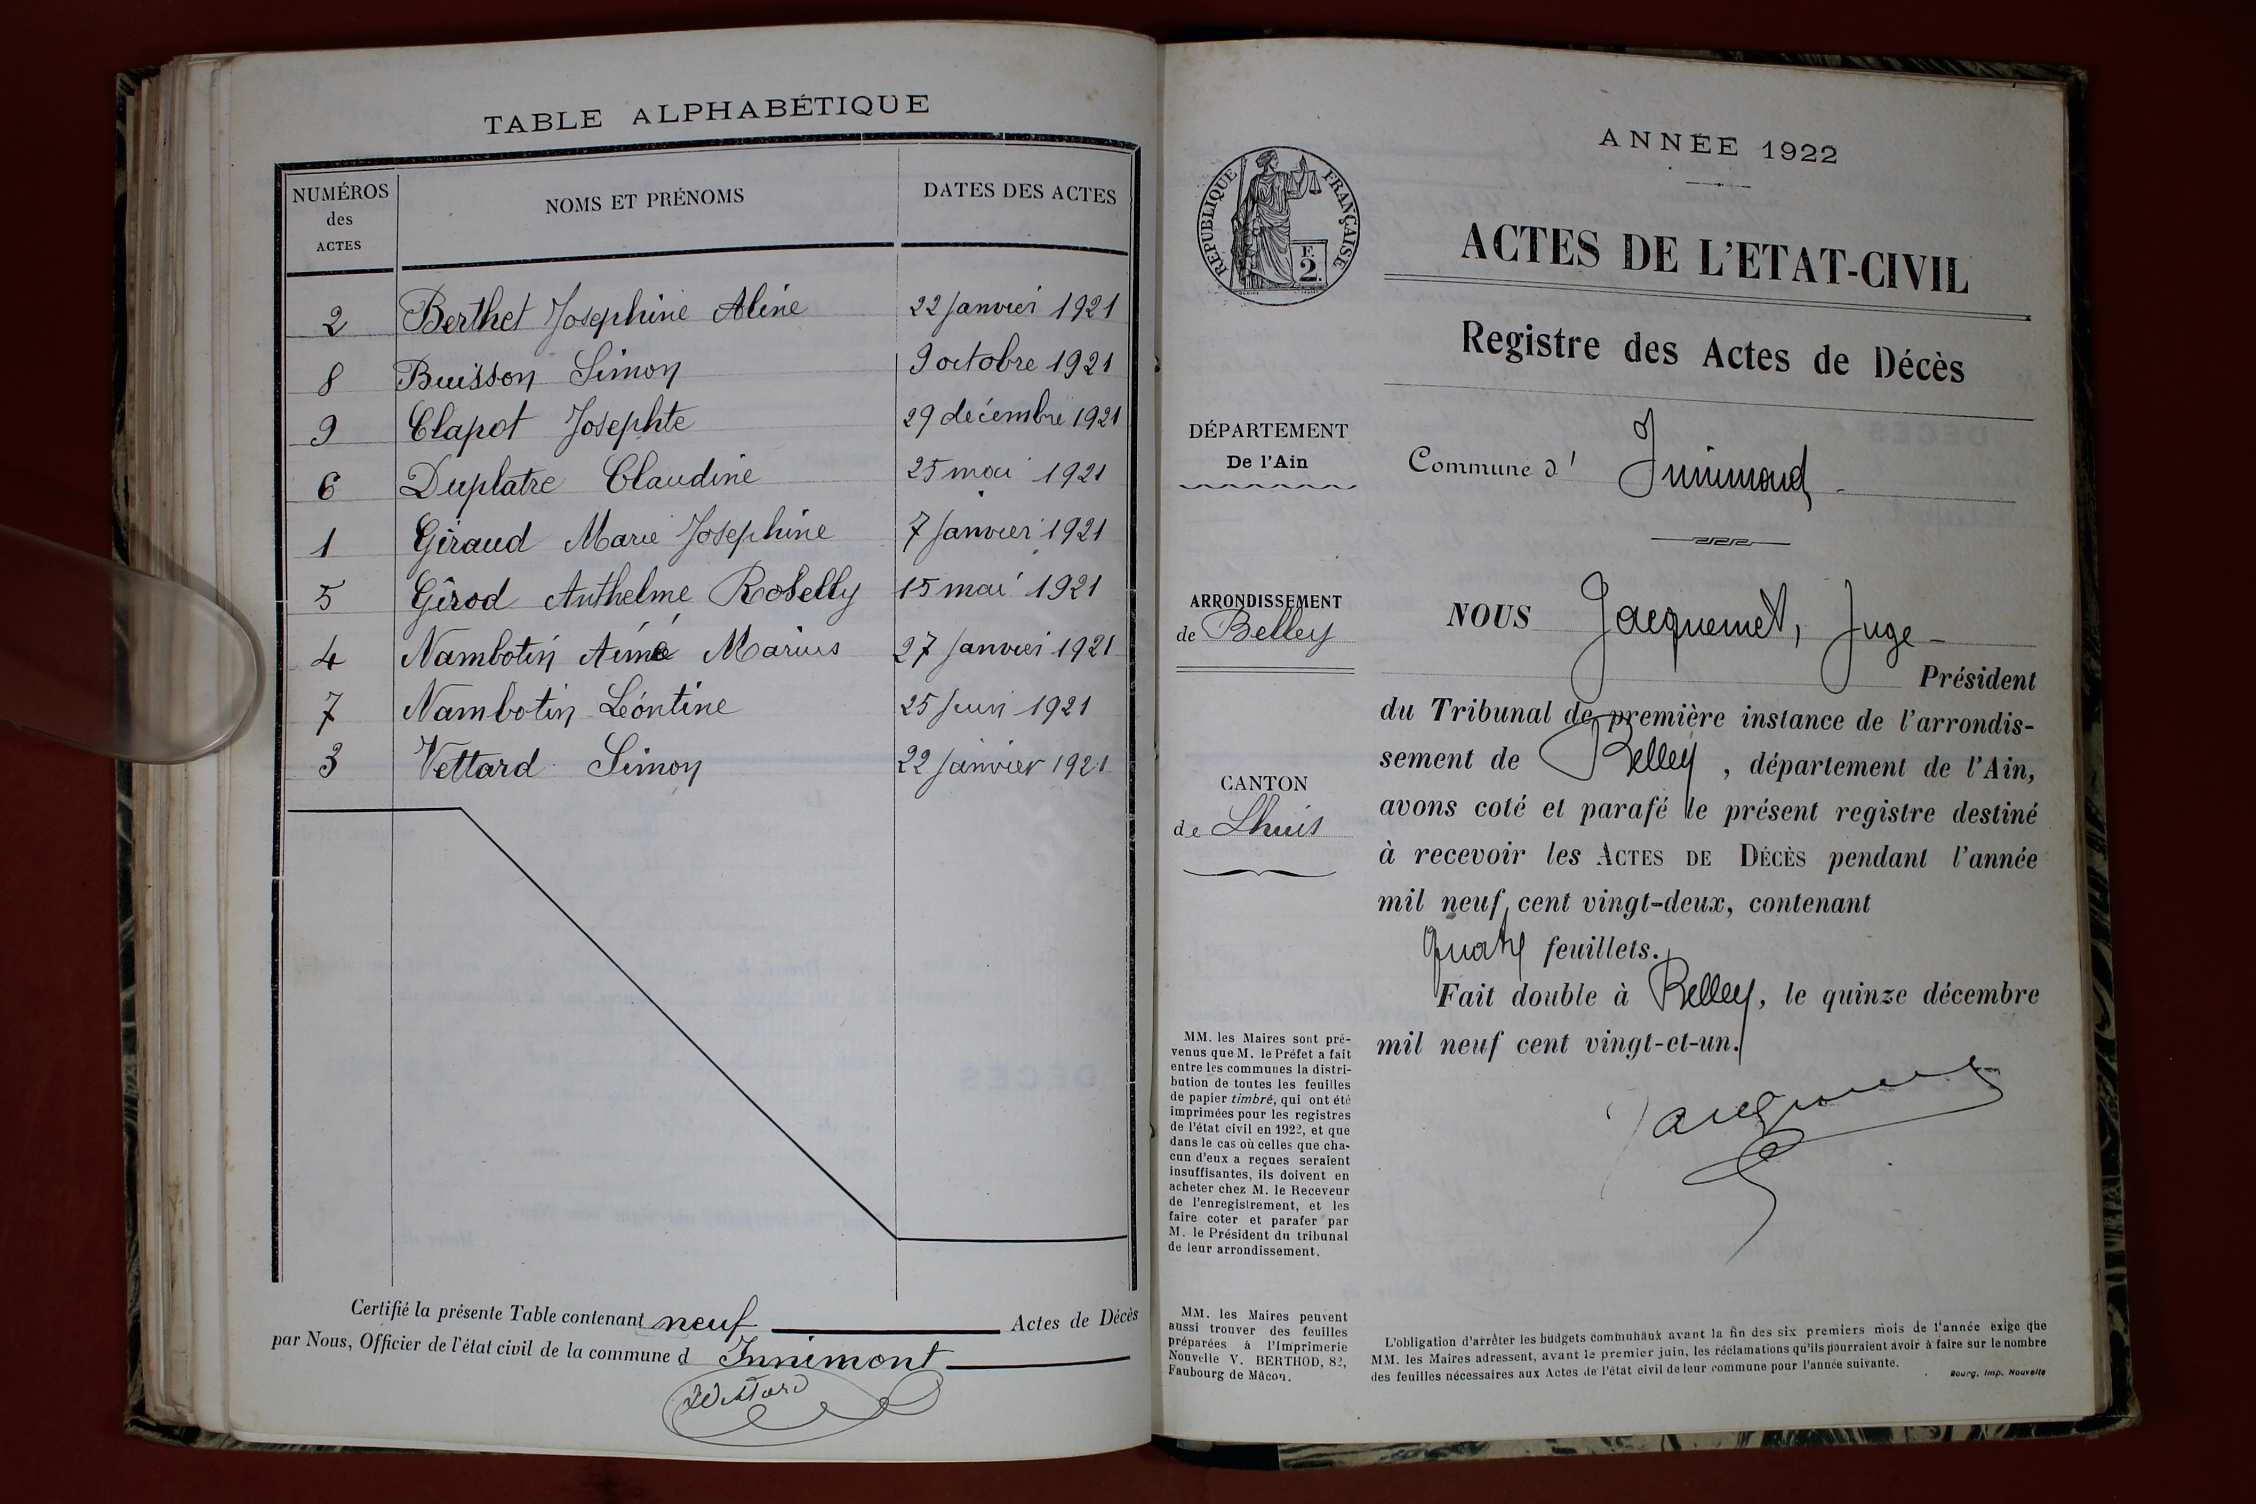 TABLE ALPHABÉTIQUE
NUMÉROS des ACTES
NOMS ET PRÉNOMS
DATES DES ACTES
2 Berthet Josephine Aline 22 Janvier 1921
8 Buisson Simon 9 octobre 1921
9 Clapot Josephte 29 décembre 1921
6 Duplatre Claudine 25 mai 1921
1 Giraud Marie Josephine 7 Janvier 1921
5 Girod Anthelme Roselly 15 mai 1921
4 Nambotin Aimé Marius 27 Janvier 1921
7 Nambotin Léontine 25 Juin 1921
3 Vettard Simon 22 Janvier 1921
Certifié la présente Table contenant neuf Actes de Décès
par Nous, Officier de l'état civil de la commune d Innimont
Vettard
ANNÉE 1922
RÉPUBLIQUE FRANÇAISE
2 F.
ACTES DE L'ETAT-CIVIL
Registre des Actes de Décès
DÉPARTEMENT
De l'Ain
Commune d' Innimond
ARRONDISSEMENT
de Belley
CANTON
de Lhuis
NOUS Jacquemet, Juge
Président
du Tribunal de première instance de l'arrondis-
sement de Belley, département de l'Ain,
avons coté et parafé le présent registre destiné
à recevoir les ACTES DE DÉCÈS pendant l'année
mil neuf cent vingt-deux, contenant
quatre feuillets.
Fait double à Belley, le quinze décembre
mil neuf cent vingt-et-un.
Jacquemet
MM. les Maires sont pré-
venus que M. le Préfet a fait
entre les communes la distri-
bution de toutes les feuilles
de papier timbré, qui ont été
imprimées pour les registres
de l'état civil en 1922, et que
dans le cas où celles que cha-
cun d'eux a reçues seraient
insuffisantes, ils doivent en
acheter chez M. le Receveur
de l'enregistrement, et les
faire coter et parafer par
M. le Président du tribunal
de leur arrondissement.
MM. les Maires peuvent
aussi trouver des feuilles
préparées à l'Imprimerie
Nouvelle V. BERTHOD, 82,
Faubourg de Mâcon.
L'obligation d'arrêter les budgets communaux avant la fin des six premiers mois de l'année exige que
MM. les Maires adressent, avant le premier juin, les réclamations qu'ils pourraient avoir à faire sur le nombre
des feuilles nécessaires aux Actes de l'état civil de leur commune pour l'année suivante.
Bourg. Imp. Nouvelle